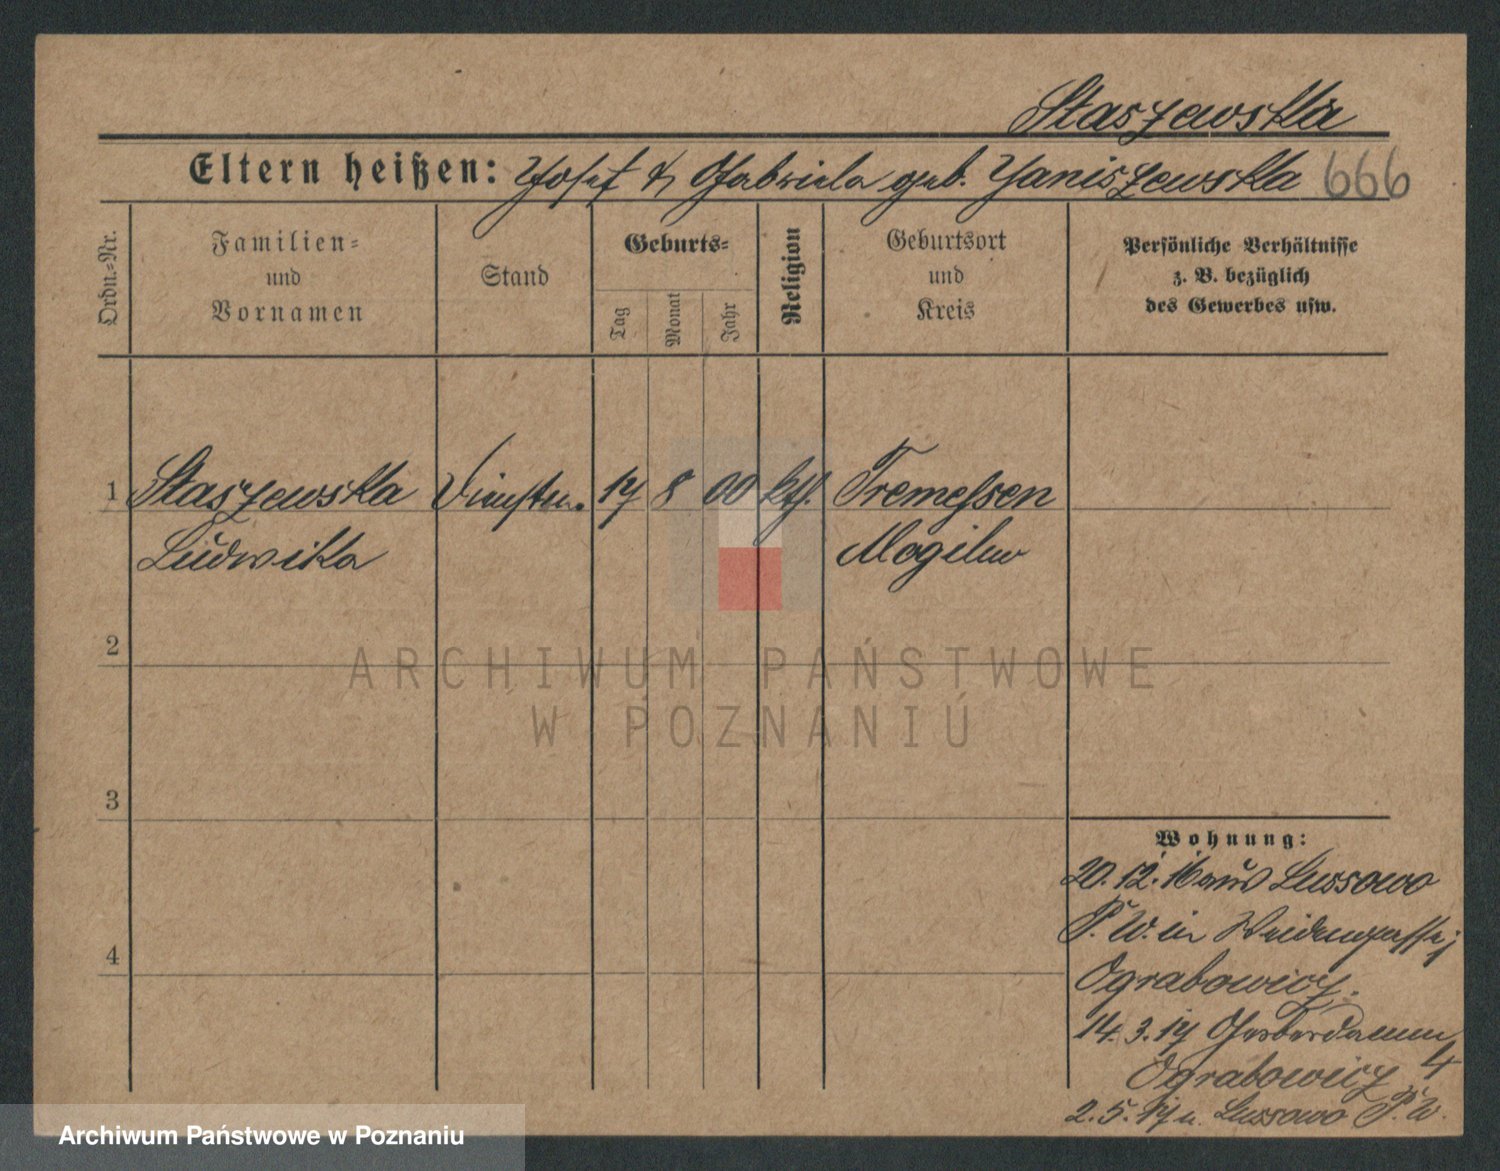 Staszewska
Eltern heißen: Josef & Gabriela geb. Janiszewska 666
Ordn.-Nr.
Familien-
und
Vornamen
Stand
Geburts-
Tag
Monat
Jahr
Religion
Geburtsort
und
Kreis
Persönliche Verhältnisse
z. B. bezüglich
des Gewerbes usw.
1 Staszewska Dienstm. 17 8 00 kth. Tremessen
Ludwika Mogilno
2
3
4
Wohnung:
20.12.16 aus Lussowo
P.W. in Weidengasse
Ograbowicz.
14.3.17 Gerberdamm 4
Ograbowicz
2.5.17 n. Lussowo P.W.
ARCHIWUM PAŃSTWOWE
W POZNANIU
Archiwum Państwowe w Poznaniu